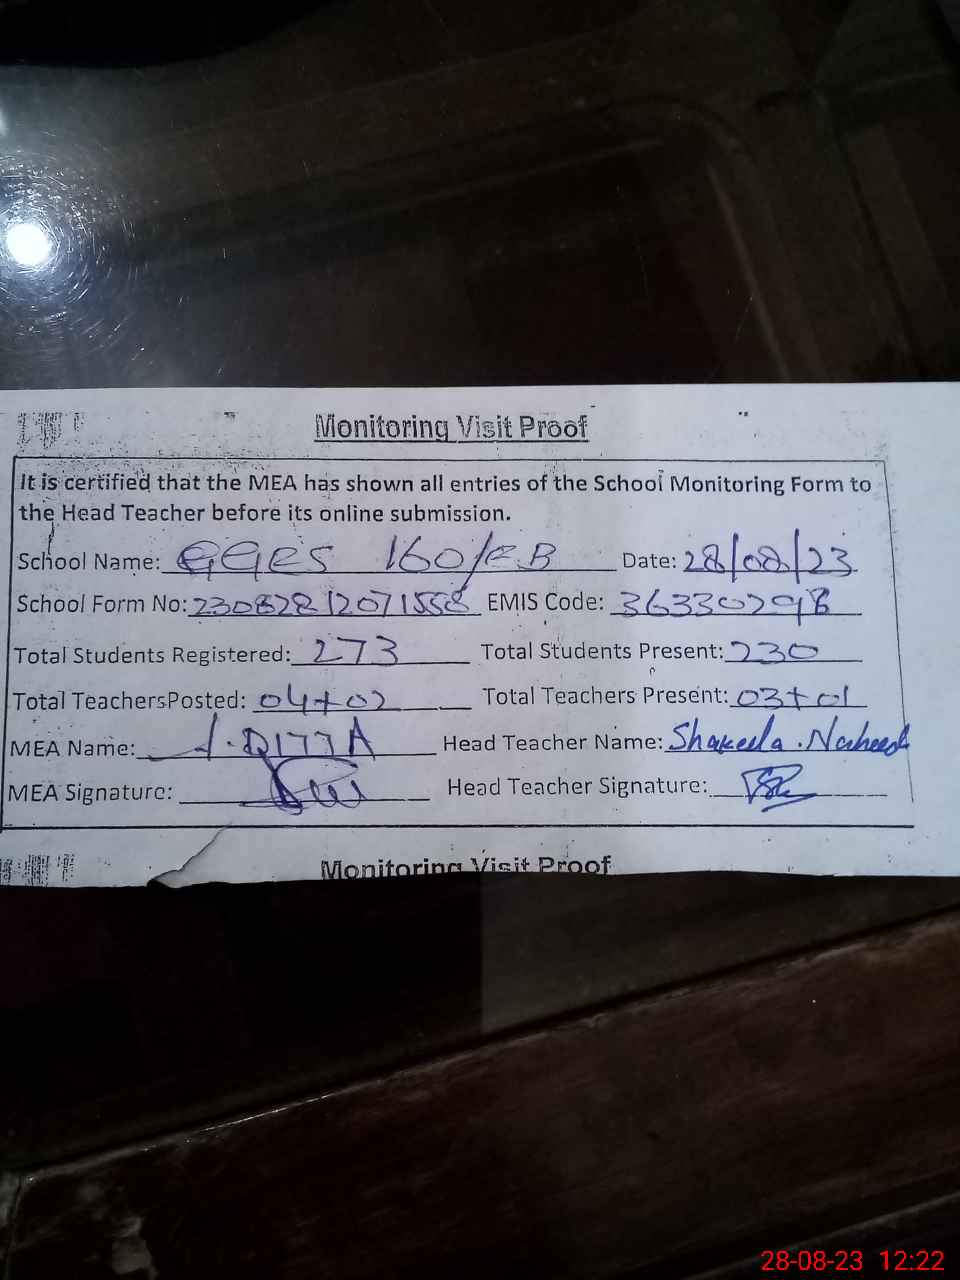 Monitoring Visit Proof
It is certified that the MEA has shown all entries of the School Monitoring Form to
the Head Teacher before its online submission.
School Name: GGES 160/EB Date: 28/08/23
School Form No: 23082812071558 EMIS Code: 36330298
Total Students Registered: 273 Total Students Present: 230
Total TeachersPosted: 04+02 Total Teachers Present: 03+01
MEA Name: Head Teacher Name: Shakeela . Naheed
MEA Signature: Head Teacher Signature:
Monitoring Visit Proof
28-08-23 12:22